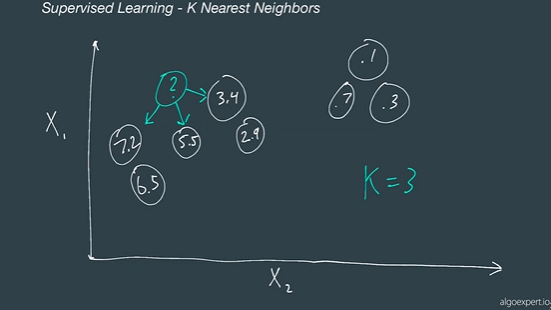 Supervised Learning - K Nearest Neighbors
.1
?
3.4
.7
.3
X₁
7.2
5.5
2.9
6.5
K=3
X₂
algoexpert.io